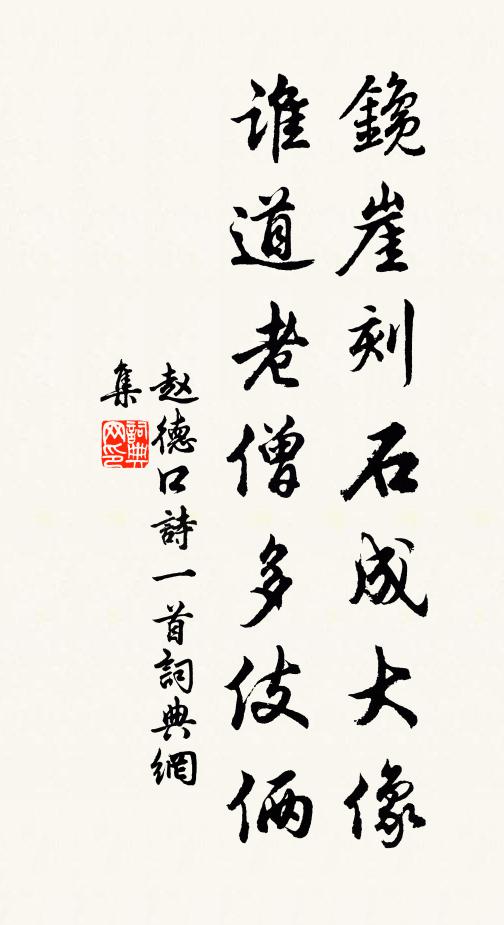 鑱崖刻石成大像
誰道老僧多伎倆
赵德口詩一首詞典網
集
詞典
网印